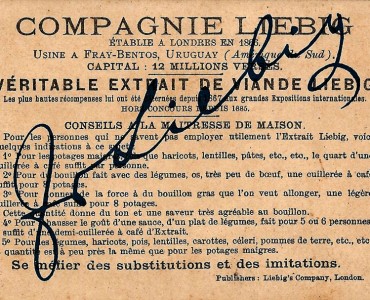 COMPAGNIE LIEBIG
ÉTABLIE A LONDRES EN 1865.
USINE A FRAY-BENTOS, URUGUAY (Amérique du Sud),
CAPITAL: 12 MILLIONS
VÉRITABLE EXTRAIT DE VIANDE LIEBIG
Les plus hautes récompenses lui ont été depuis 1867 aux grandes Expositions internationales.
HORS CONCOURS DEPUIS 1885.
CONSEILS A LA MAITRESSE DE MAISON.
Pour les personnes qui ne savent pas employer utilement l'Extrait Liebig, voici
quelques indications à ce
1º Pour potages que haricots, lentilles, pâtes, etc., etc., le quart d'une
à café
2º Pour un bouillon fait avec des légumes, os, très peu de bœuf, une cuillerée à café
d'Extrait
3º Pour donner la force à du bouillon gras que l'on veut allonger, une légère
pour 8 potages.
Cette quantité donne du ton et une saveur très agréable au bouillon.
4º Pour rehausser le goût d'une sauce, d'un plat de légumes, fait pour 5 ou 6 personnes
d'une demi-cuillerée à café d'Extrait.
5º Pour légumes, haricots, pois, lentilles, carottes, céleri, pommes de terre, etc., etc.
quantité est à peu près la même que pour les potages maigres.
Se méfier des substitutions et des imitations.
Publishers: Liebig's Company, London.
J. v. Liebig